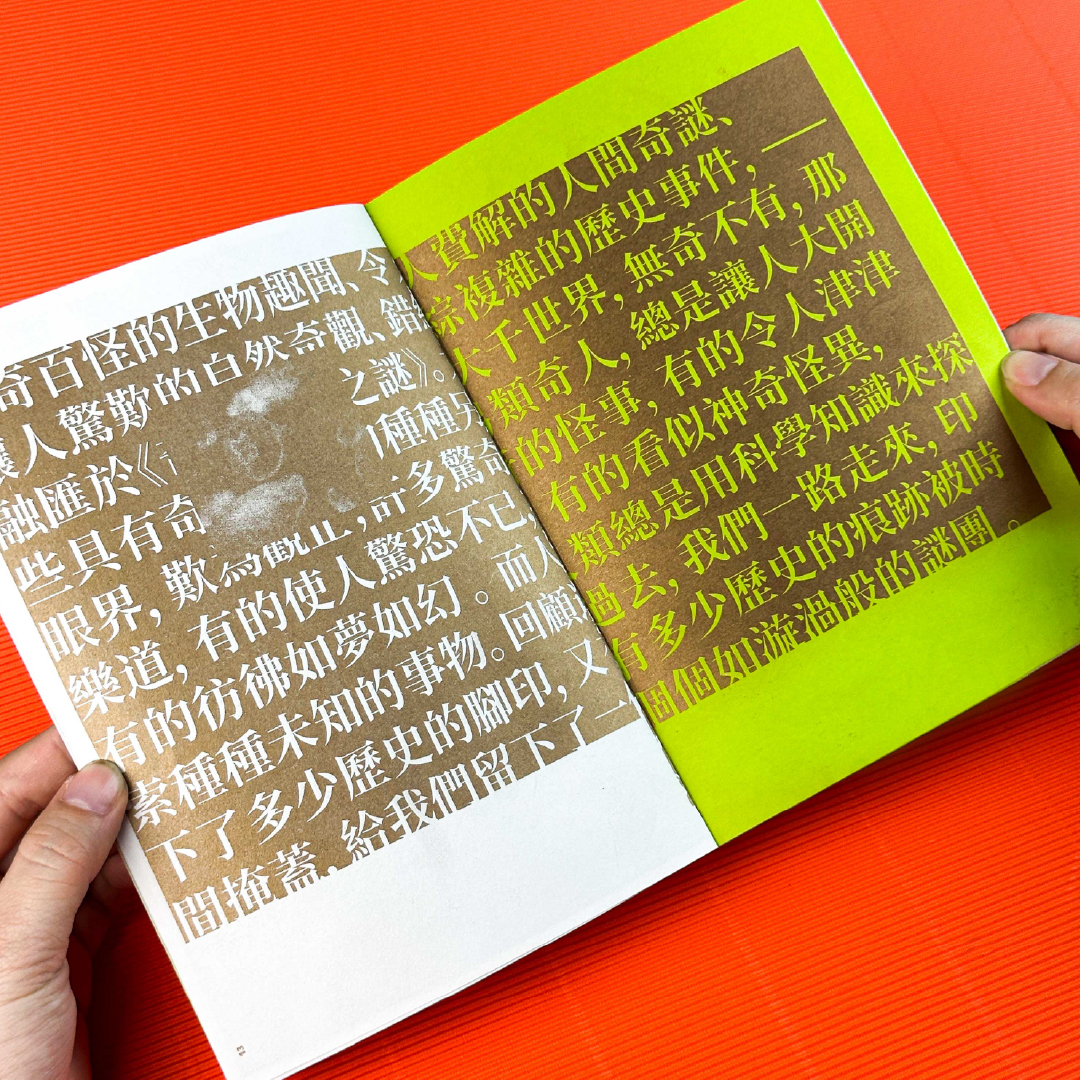 奇百怪的生物趣聞、令人費解的人間奇謎、
讓人驚歎的自然奇觀、錯綜複雜的歷史事件，一
融匯於《 之謎》。大千世界，無奇不有，那
些具有奇 種種另類奇人，總是讓人大開
眼界，歎為觀止，許多驚奇的怪事，有的令人津津
樂道，有的使人驚恐不已，有的看似神奇怪異，
有的彷彿如夢如幻。而人類總是用科學知識來探
索種種未知的事物。回顧過去，我們一路走來，印
下了多少歷史的腳印，又有多少歷史的痕跡被時
間掩蓋，給我們留下了一個個如漩渦般的謎團。